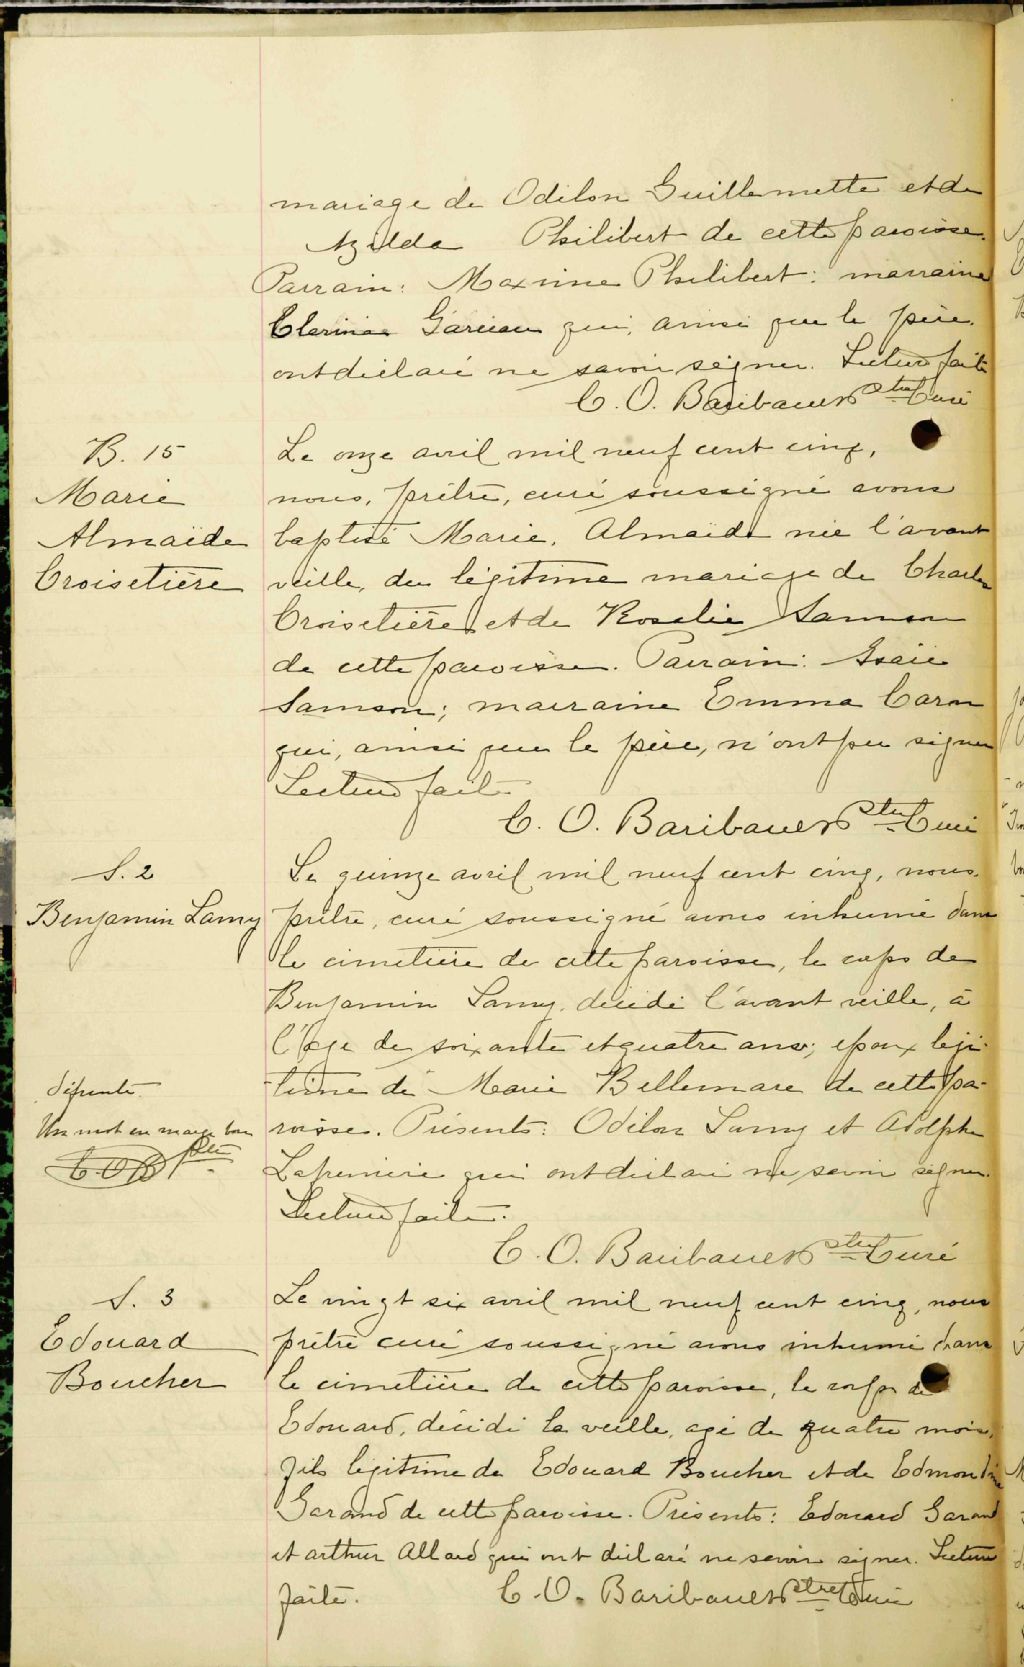 mariage de Odilon Guillemette et de
Azilda Philibert de cette paroisse.
Parrain: Maxime Philibert: marraine
Clarinda Garceau qui, ainsi que le père,
ont déclaré ne savoir signer. Lecture faite
C. O. Baribault Ptre Curé
B. 15
Marie
Almaïde
Croisetière
Le onze avril mil neuf cent cinq,
nous, prêtre, curé soussigné avons
baptisé Marie, Almaïde née l'avant
veille, du légitime mariage de Charles
Croisetière et de Rosalie Samson
de cette paroisse. Parrain: Isaïe
Samson; marraine Emma Caron
qui, ainsi que le père, n'ont pu signer
Lecture faite
C. O. Baribault Ptre Curé
S. 2
Benjamin Lamy
Le quinze avril mil neuf cent cinq, nous,
prêtre, curé soussigné avons inhumé dans
le cimetière de cette paroisse, le corps de
Benjamin Lamy, décédé l'avant veille, à
l'âge de soixante et quatre ans; époux légi-
time de Marie Bellemare de cette pa-
roisse. Présents: Odilon Lamy et Adolphe
Lafrenière qui ont déclaré ne savoir signer.
Lecture faite.
C. O. Baribault Ptre Curé
défunte
Un mot en marge bon
C O B Ptre
S. 3
Edouard
Boucher
Le vingt six avril mil neuf cent cinq, nous
prêtre curé soussigné avons inhumé dans
le cimetière de cette paroisse, le corps de
Edouard, décédé la veille, agé de quatre mois,
fils légitime de Edouard Boucher et de Edmondine
Garand de cette paroisse. Présents: Edouard Garand
et arthur Allard qui ont déclaré ne savoir signer. Lecture
faite. C. O. Baribault Ptre Curé